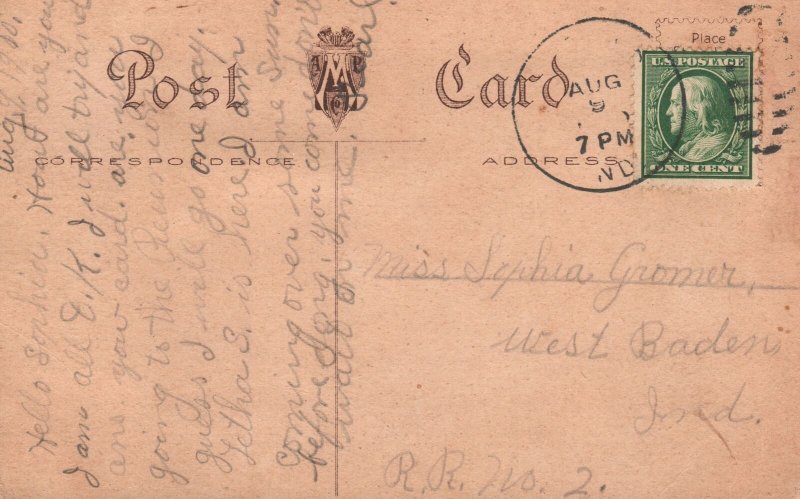 Post Card
CORRESPONDENCE
ADDRESS
Place
U.S. POSTAGE
ONE CENT
AUG
9
7 PM
IND
A M P
Co
Hello Sophia. How are you
I am all O.K. I will try and
ans your card. are you
going to the Reunion, I
guess I will go one day.
Letha S. is here I am
coming over some Sun.
before long, you come down
Miss Sophia Gromer,
West Baden
Ind.
R.R. No. 2.